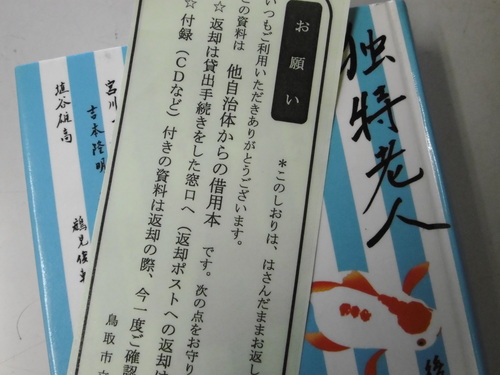 お願い
*このしおりは、はさんだままお返し
いつもご利用いただきありがとうございます。
この資料は 他自治体からの借用本 です。次の点をお守り
☆ 返却は貸出手続きをした窓口へ（返却ポストへの返却は
☆ 付録（CDなど）付きの資料は返却の際、今一度ご確認
鳥取市
独特老人
後
宮川
吉本隆明
埴谷雄高
鶴見俊